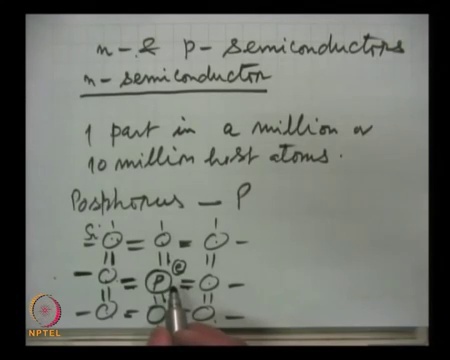 n- & p- semiconductors
n- semiconductor
1 part in a million or
10 million host atoms.
Posphorus — P
Si
e
P
NPTEL